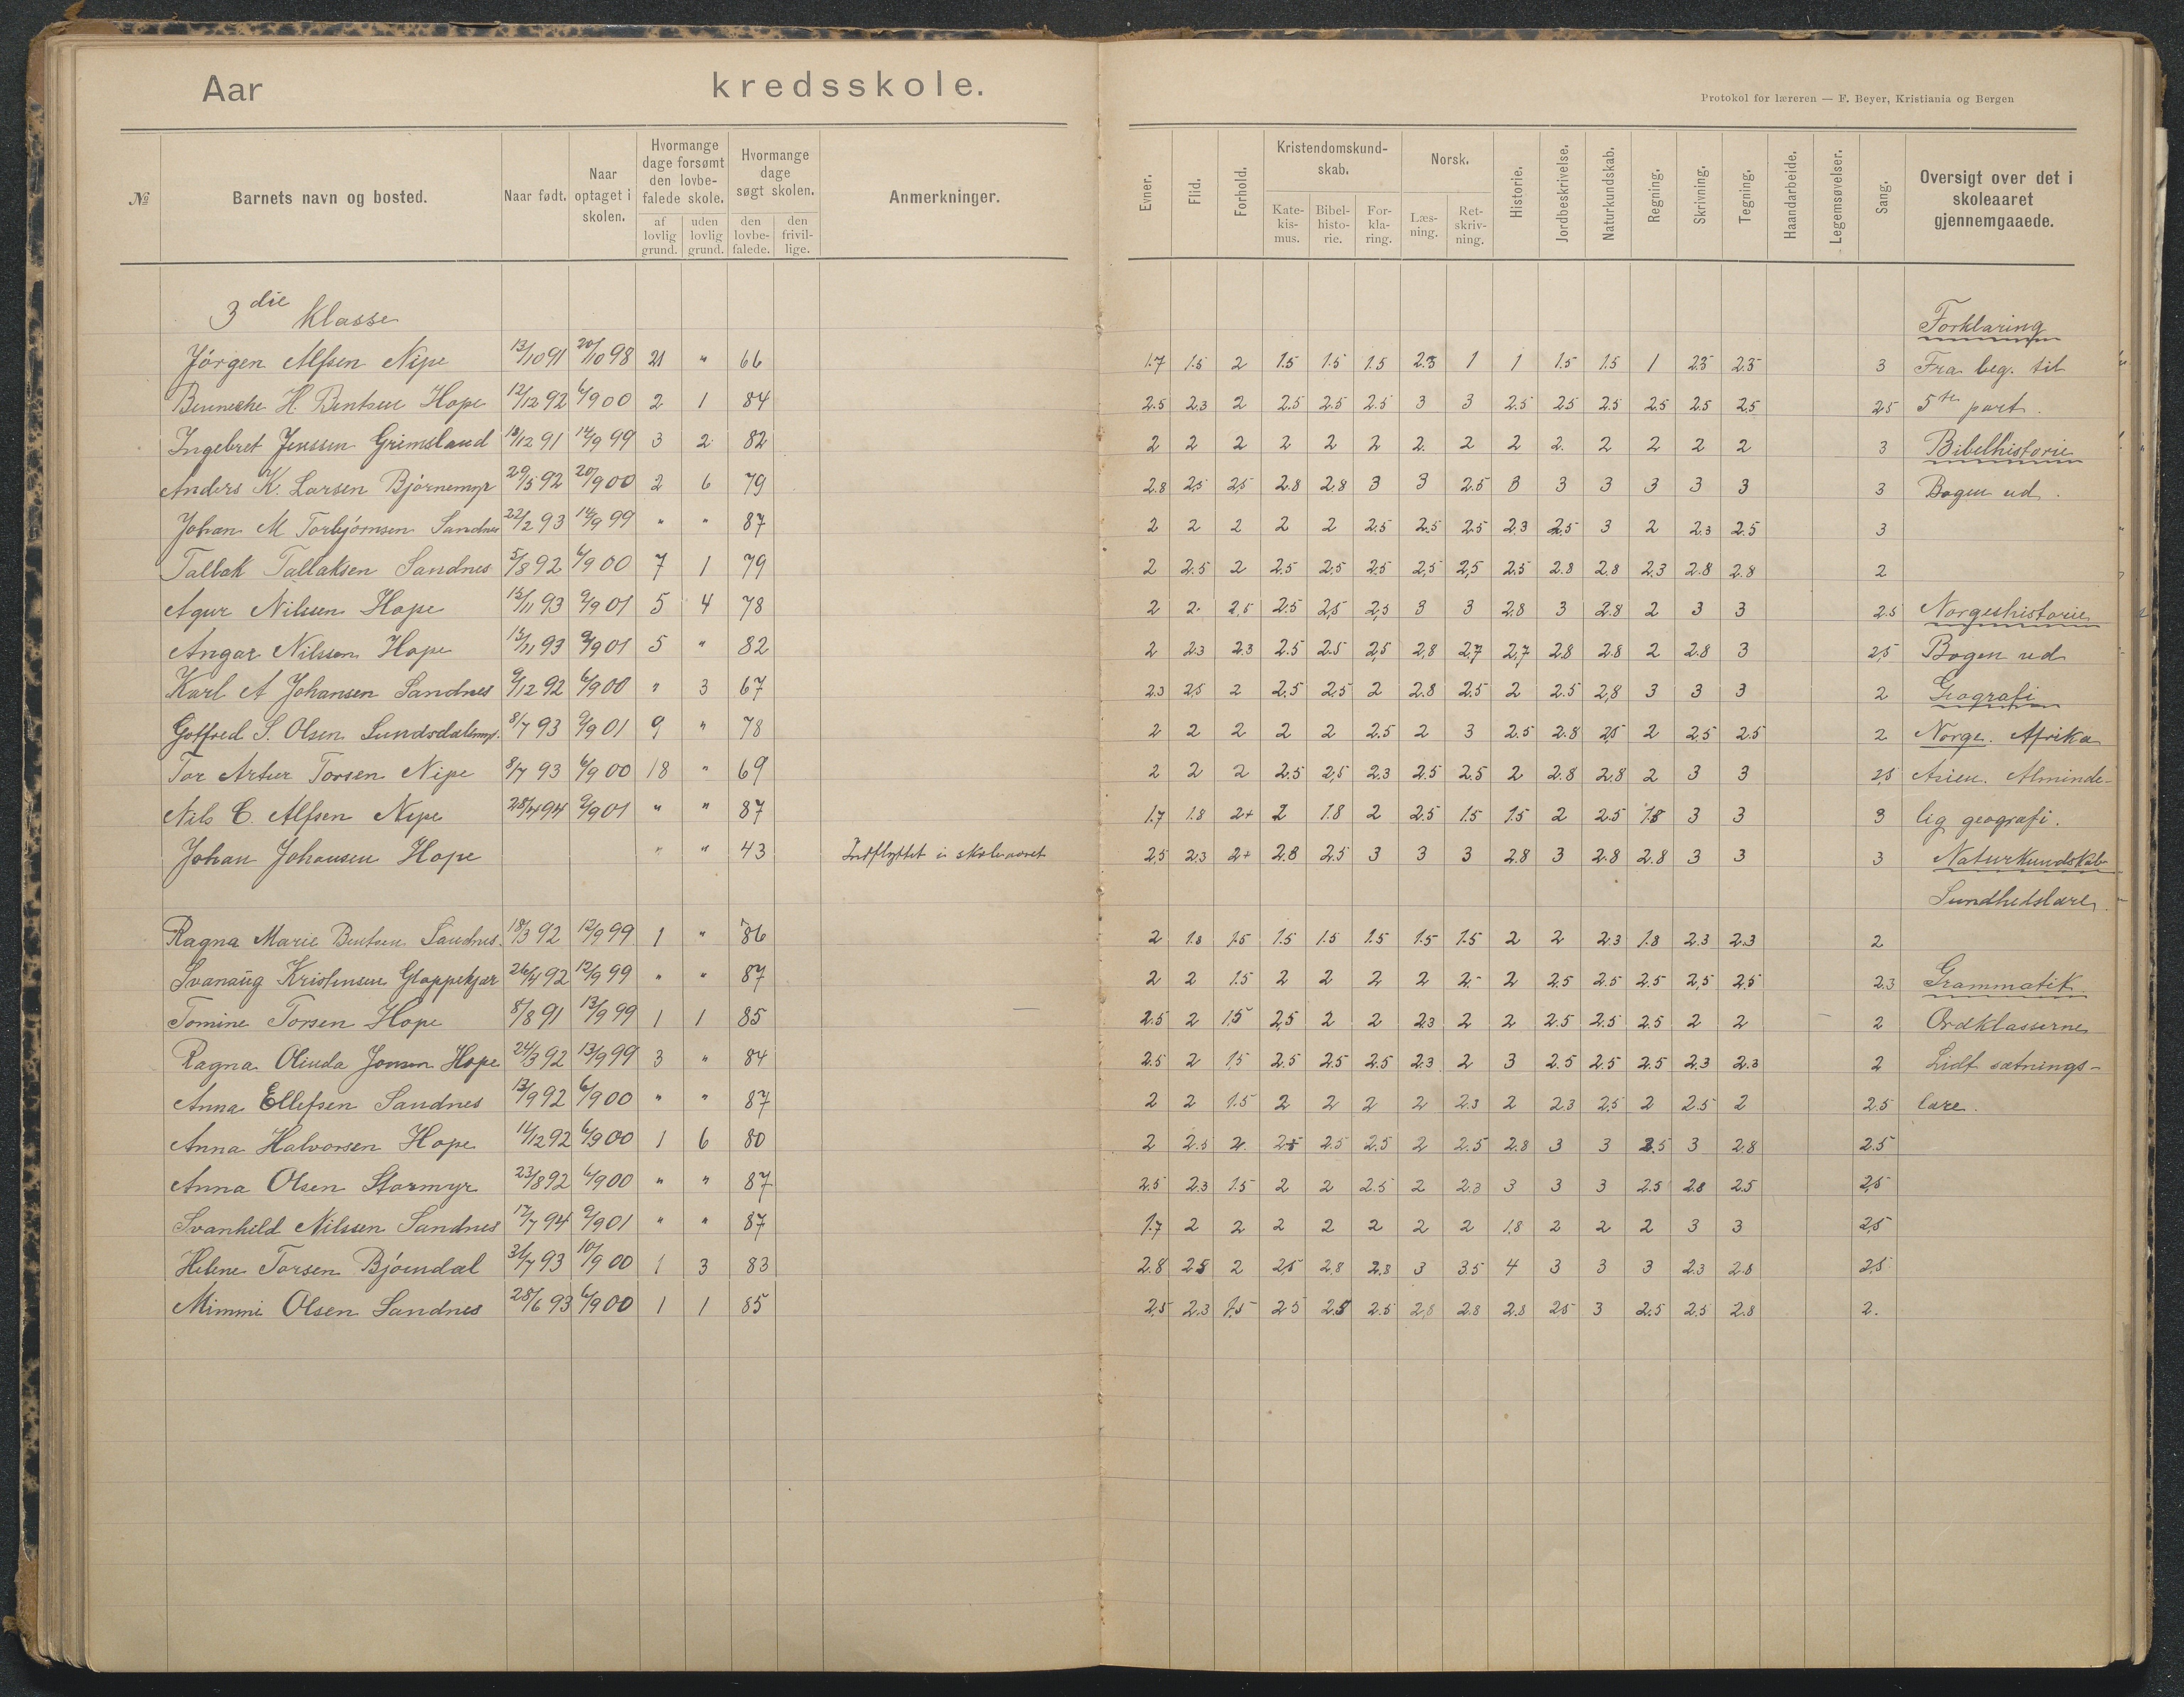 Aar kredsskole.
Protokol for læreren — F. Beyer, Kristiania og Bergen
№ Barnets navn og bosted. Naar født. Naar optaget i skolen. Hvormange dage forsømt den lovbefalede skole. af lovlig grund. uden lovlig grund. Hvormange dage søgt skolen. den lovbefalede. den frivillige. Anmerkninger. Evner. Flid. Forhold. Kristendomskundskab. Katekismus. Bibelhistorie. Forklaring. Norsk. Læsning. Retskrivning. Historie. Jordbeskrivelse. Naturkundskab. Regning. Skrivning. Tegning. Haandarbeide. Legemsøvelser. Sang. Oversigt over det i skoleaaret gjennemgaaede.
3die Klasse Forklaring
Jörgen Alfsen Nipe 13/10 91 20/10 98 21 " 66 1.7 1.5 2 1.5 1.5 1.5 2.3 1 1 1.5 1.5 1 2.5 2.5 3 Fra beg. til
H. Bentsen Hope 12/12 92 6/9 00 2 1 84 2.5 2.3 2 2.5 2.5 2.5 3 3 2.5 2.5 2.5 2.5 2.5 2.5 2.5 5te part.
Ingebret Jenssen Grimsland 18/12 91 14/9 99 3 2 82 2 2 2 2 2 2 2 2 2 2 2 2 2 2 3 Bibelhistorie
Anders K. Larsen Bjørnemyr 29/5 92 20/9 00 2 6 79 2.8 2.5 2.5 2.8 2.8 3 3 2.5 3 3 3 3 3 3 3 Bogen ud.
Johan M Torbjörnsen Sandnes 22/2 93 14/9 99 " " 87 2 2 2 2 2 2.5 2.5 2.5 2.3 2.5 3 2 2.3 2.5 3
Tallak Tallaksen Sandnes 5/8 92 6/9 00 7 1 79 2 2.5 2 2.5 2.5 2.5 2.5 2.5 2.5 2.8 2.8 2.3 2.8 2.8 2
Agur Nilssen Hope 13/11 93 9/9 01 5 4 78 2 2 2.5 2.5 2.5 2.5 3 3 2.8 3 2.8 2 3 3 2.5 Norgeshistorie
Angar Nilssen Hope 13/11 93 9/9 01 5 " 82 2 2.3 2.3 2.5 2.5 2.5 2.8 2.7 2.7 2.8 2.8 2 2.8 3 2.5 Bogen ud
Karl A Johansen Sandnes 9/12 92 6/9 00 " 3 67 2.3 2.5 2 2.5 2.5 2 2.8 2.5 2 2.5 2.8 3 3 3 2 Geografi
Gotfred S. Olsen 8/7 93 9/9 01 9 " 78 2 2 2 2 2 2.5 2 3 2.5 2.8 2.5 2 2.5 2.5 2 Norge. Afrika
Tor Artur Torsen Nipe 8/7 93 6/9 00 18 " 69 2 2 2 2.5 2.5 2.3 2.5 2.5 2 2.8 2.8 2 3 3 2.5 Asien. Alminde-
Nils C. Alfsen Nipe 28/4 94 9/9 01 " " 87 1.7 1.8 2+ 2 1.8 2 2.5 1.5 1.5 2 2.5 1.8 3 3 3 lig geografi.
Johan Johansen Hope " " 43 Indflyttet i skoleaaret 2.5 2.3 2+ 2.8 2.5 3 3 3 2.8 3 2.8 2.8 3 3 3 Naturkundskab
Sundhedslære.
Ragna Marie Bentsen Sandnes 18/3 92 12/9 99 1 " 86 2 1.8 1.5 1.5 1.5 1.5 1.5 1.5 2 2 2.3 1.8 2.3 2.3 2
Svanaug Kristensen Gloppekjær 26/4 92 12/9 99 " " 87 2 2 1.5 2 2 2 2 2 2 2.5 2.5 2.5 2.5 2.5 2.3 Grammatik
Tomine Torsen Hope 8/8 91 13/9 99 1 1 85 2.5 2 1.5 2.5 2 2 2.3 2 2 2.5 2.5 2.5 2 2 2 Ordklasserne
Ragna Olinda Jonsen Hope 24/3 92 13/9 99 3 " 84 2.5 2 1.5 2.5 2.5 2.5 2.3 2 3 2.5 2.5 2.5 2.3 2.3 2 Lidt sætnings-
Anna Ellefsen Sandnes 13/9 92 6/9 00 " " 87 2 2 1.5 2 2 2 2 2.3 2 2.3 2.5 2 2.5 2 2.5 lære.
Anna Halvorsen Hope 11/12 92 6/9 00 1 6 80 2 2.5 2 2.5 2.5 2.5 2 2.5 2.8 3 3 2.5 3 2.8 2.5
Anna Olsen Stormyr 23/8 92 6/9 00 " " 87 2.5 2.3 1.5 2 2 2.5 2 2.3 3 3 3 2.5 2.8 2.5 2.5
Svanhild Nilssen Sandnes 17/7 94 9/9 01 " " 87 1.7 2 2 2 2 2 2 2 1.8 2 2 2 3 3 2.5
Helene Torsen Bjørndal 31/7 93 10/9 00 1 3 83 2.8 2.5 2 2.5 2.8 2.8 3 3.5 4 3 3 3 2.3 2.8 2.5
Mimmi Olsen Sandnes 28/6 93 6/9 00 1 1 85 2.5 2.3 1.5 2.5 2.5 2.5 2.8 2.8 2.8 2.5 3 2.5 2.5 2.8 2.